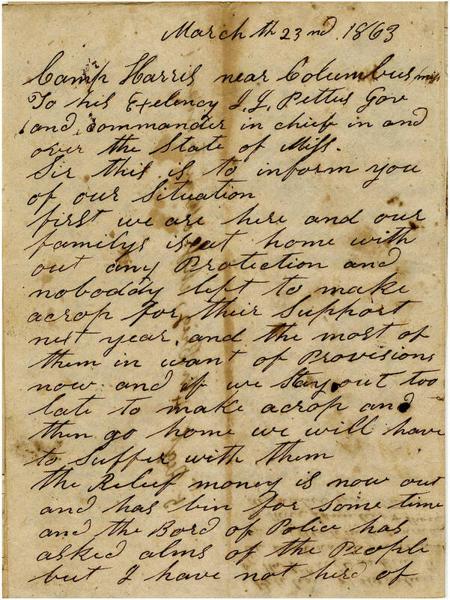 March th 23nd 1863
Camp Harris near Columbus Mis
To his Exelency J. J. Pettus Gov
and Commander in chief in and
over the State of Miss.
Sir this is to inform you
of our Situation
first we are here and our
familys is at home with
out any Protection and
nobodday left to make
acrop for their Support
next year. and the most of
them in want of Provisions
now and if we Stay out too
late to make acrop and
then go home we will have
to Suffer with them
the Relief money is now out
and has bin for Some time
and the Bord of Police has
asked alms of the People
but I have not herd of